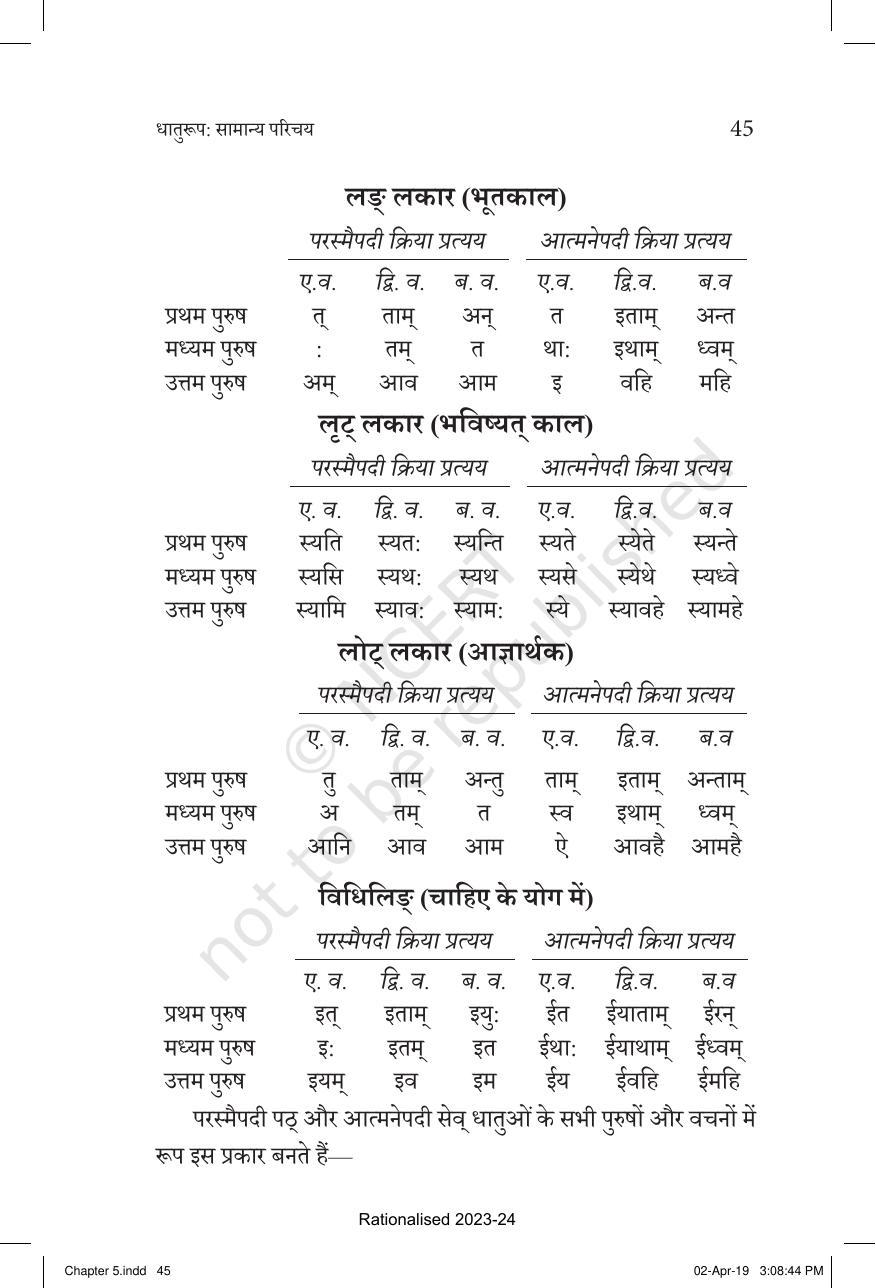 धातुरूप: सामान्य परिचय 45
लङ् लकार (भूतकाल)
परस्मैपदी क्रिया प्रत्यय आत्मनेपदी क्रिया प्रत्यय
ए.व. द्वि. व. ब. व. ए.व. द्वि.व. ब.व
प्रथम पुरुष त् ताम् अन् त इताम् अन्त
मध्यम पुरुष : तम् त था: इथाम् ध्वम्
उत्तम पुरुष अम् आव आम इ वहि महि
लृट् लकार (भविष्यत् काल)
परस्मैपदी क्रिया प्रत्यय आत्मनेपदी क्रिया प्रत्यय
ए. व. द्वि. व. ब. व. ए.व. द्वि.व. ब.व
प्रथम पुरुष स्यति स्यत: स्यन्ति स्यते स्येते स्यन्ते
मध्यम पुरुष स्यसि स्यथ: स्यथ स्यसे स्येथे स्यध्वे
उत्तम पुरुष स्यामि स्याव: स्याम: स्ये स्यावहे स्यामहे
लोट् लकार (आज्ञार्थक)
परस्मैपदी क्रिया प्रत्यय आत्मनेपदी क्रिया प्रत्यय
ए. व. द्वि. व. ब. व. ए.व. द्वि.व. ब.व
प्रथम पुरुष तु ताम् अन्तु ताम् इताम् अन्ताम्
मध्यम पुरुष अ तम् त स्व इथाम् ध्वम्
उत्तम पुरुष आनि आव आम ऐ आवहै आमहै
विधिलिङ् (चाहिए के योग में)
परस्मैपदी क्रिया प्रत्यय आत्मनेपदी क्रिया प्रत्यय
ए. व. द्वि. व. ब. व. ए.व. द्वि.व. ब.व
प्रथम पुरुष इत् इताम् इयु: ईत ईयाताम् ईरन्
मध्यम पुरुष इ: इतम् इत ईथा: ईयाथाम् ईध्वम्
उत्तम पुरुष इयम् इव इम ईय ईवहि ईमहि
परस्मैपदी पठ् और आत्मनेपदी सेव् धातुओं के सभी पुरुषों और वचनों में
रूप इस प्रकार बनते हैं—
© NCERT
not to be republished
Rationalised 2023-24
Chapter 5.indd 45 02-Apr-19 3:08:44 PM